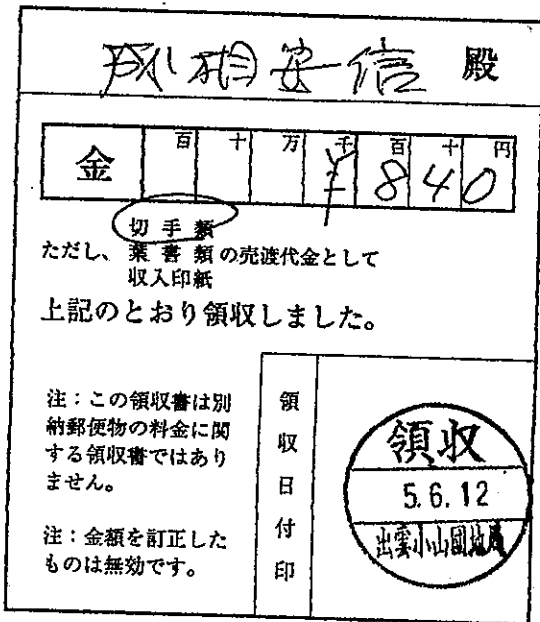 成相安信 殿
金 百 十 万 千 百 十 円
¥840
切手類
ただし、 葉書類 の売渡代金として
収入印紙
上記のとおり領収しました。
注：この領収書は別
納郵便物の料金に関
する領収書ではあり
ません。
注：金額を訂正した
ものは無効です。
領収日付印
領収
5.6.12
出雲小山団地局